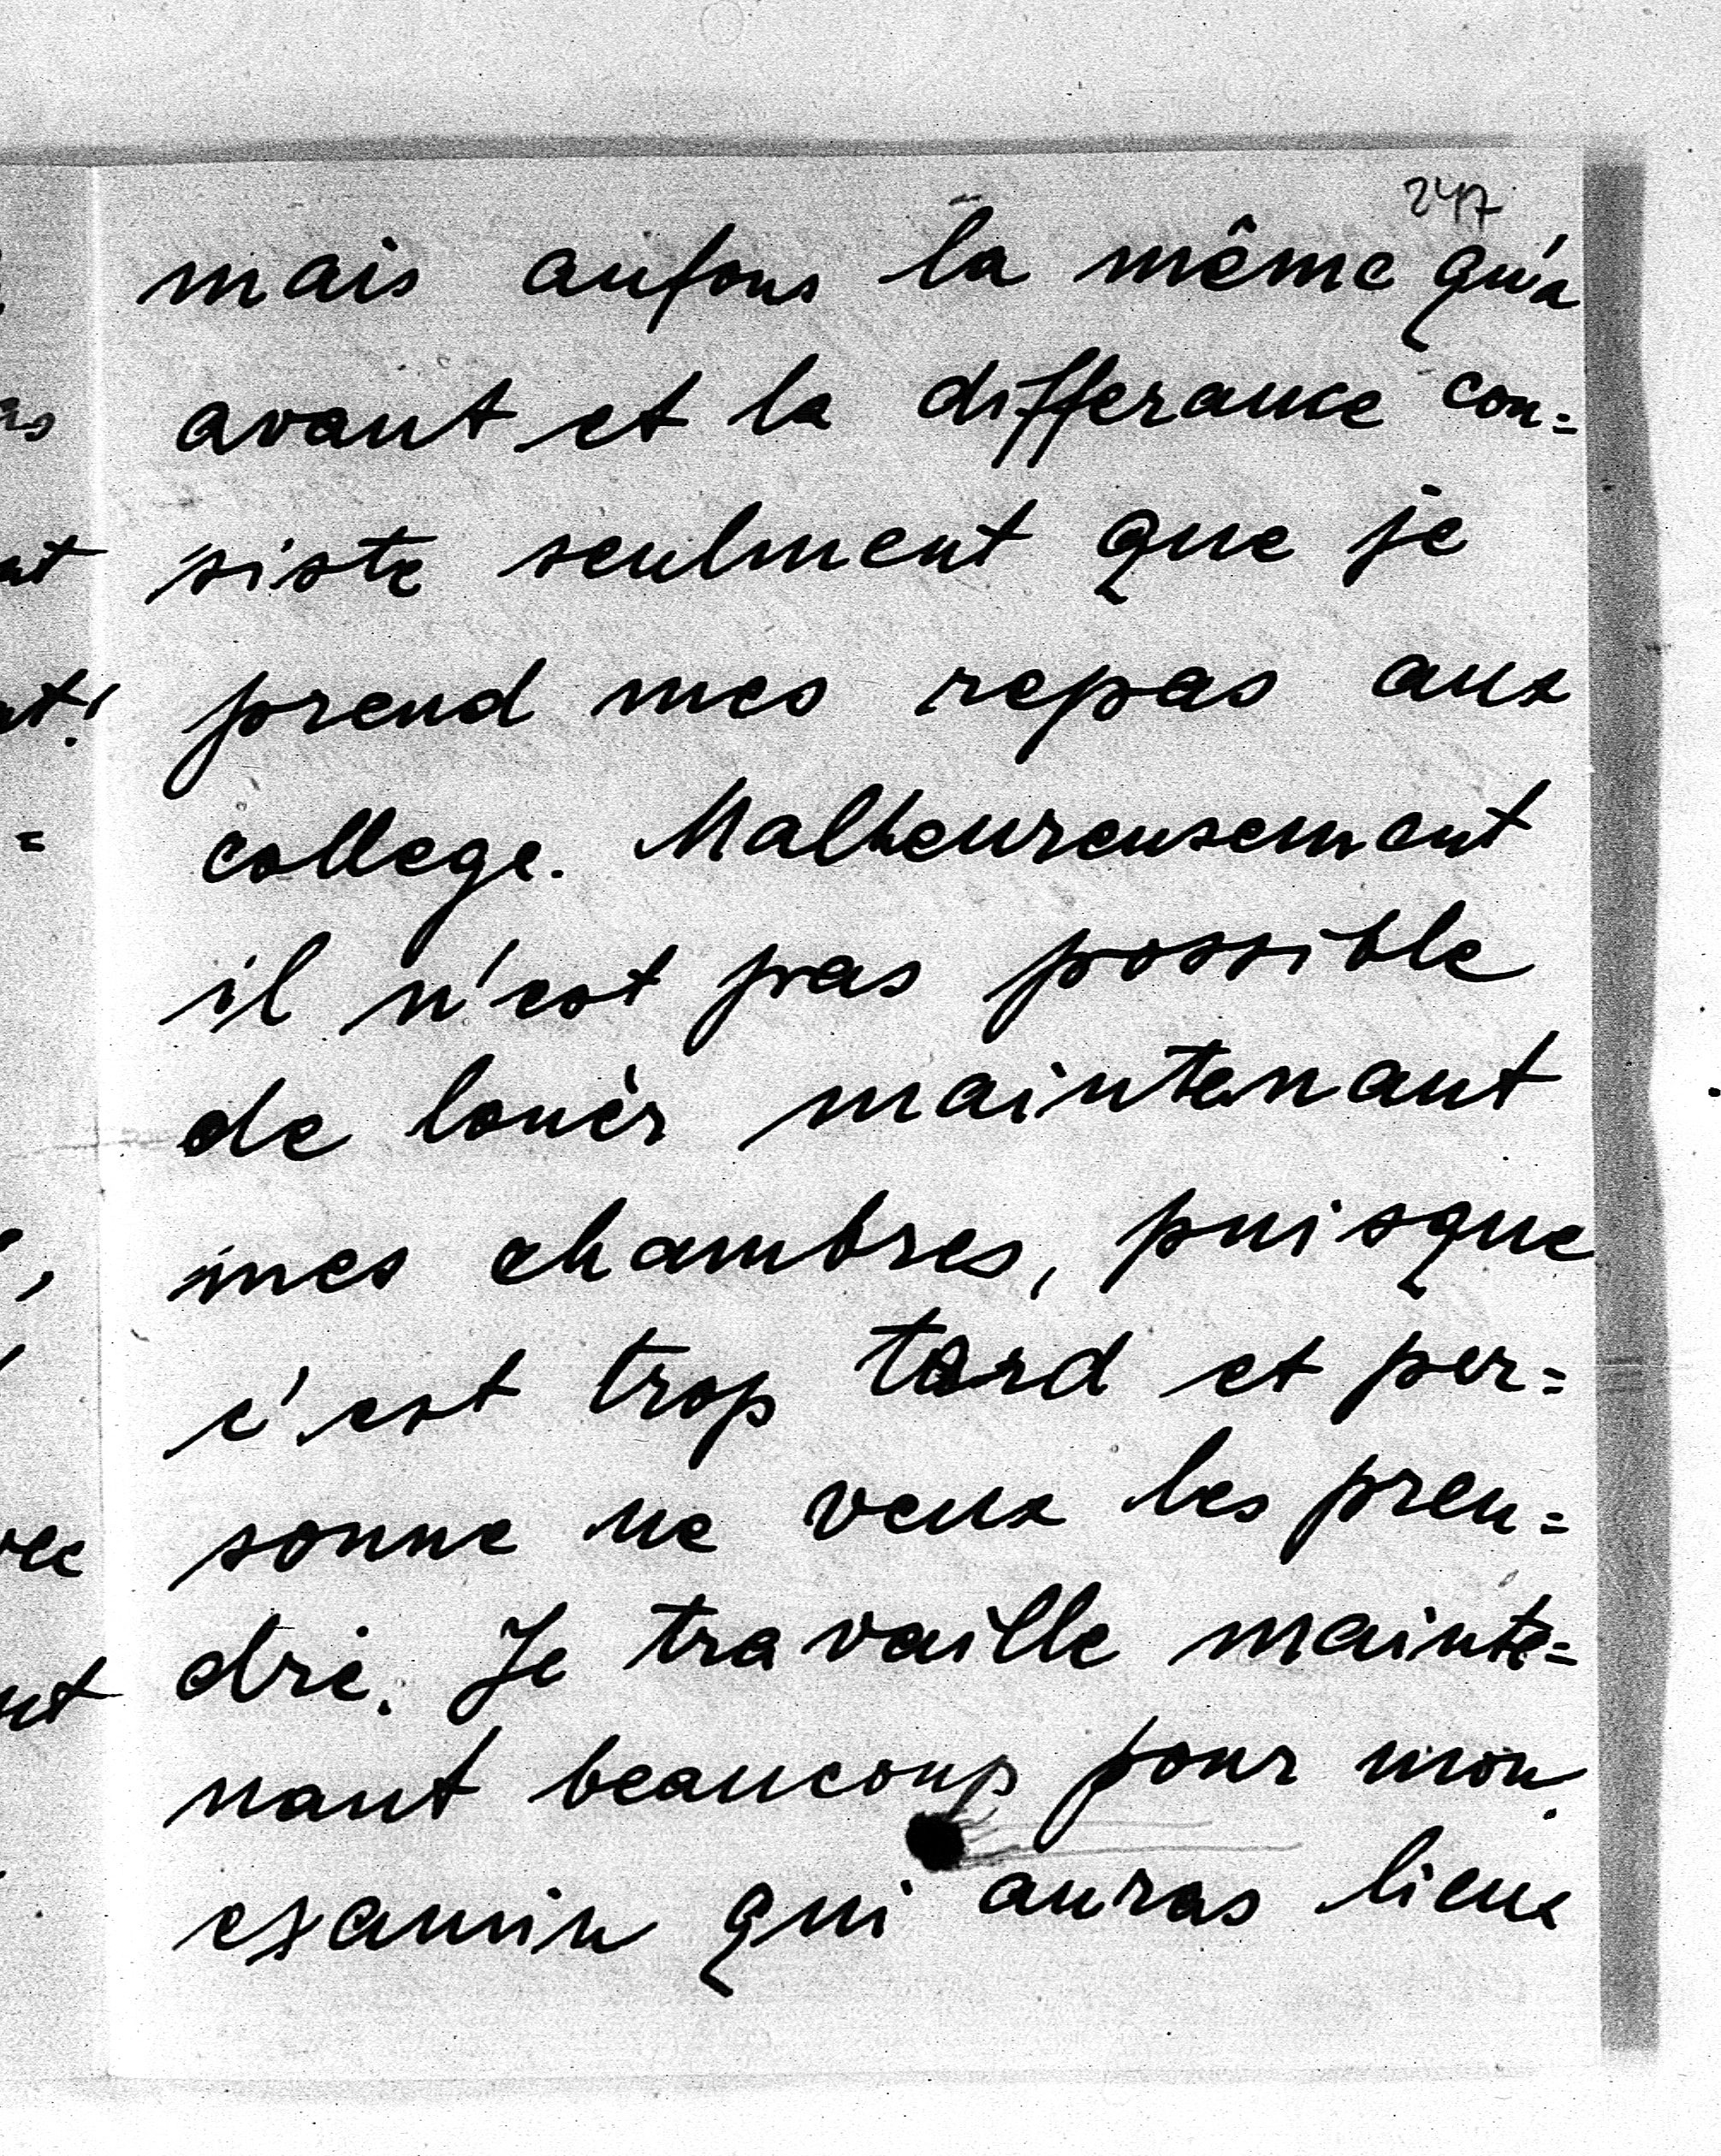 247
mais aufons la même qu'a
avant et la differance con=
siste seulment que je
prend mes repas aux
college. Malheureusement
il n'est pas possible
de louèr maintenant
mes chambres, puisque
c'est trop tard et per=
sonne ne veux les pren=
dre. Je travaille mainte=
nant beaucoup pour mon
examin qui auras lieux